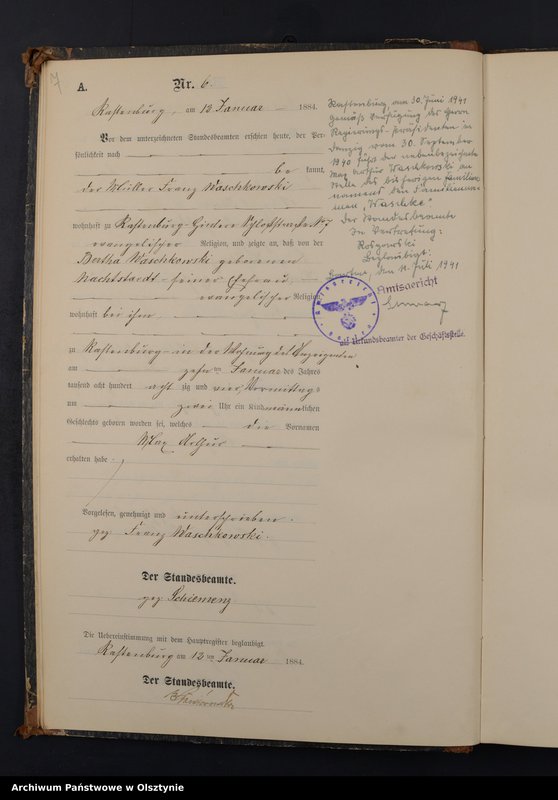 7
A.
Nr. 6.
Rastenburg, am 12 Januar 1884.
Vor dem unterzeichneten Standesbeamten erschien heute, der Per-
sönlichkeit nach
be kannt,
der Müller Franz Waschkowski
wohnhaft zu Rastenburg
evangelischer Religion, und zeigte an, daß von der
Bertha Waschkowski geborenen
Nachtstardt seiner Ehefrau
evangelischer Religion,
wohnhaft bei ihm
zu Rastenburg in der Wohnung des Anzeigenden
am zehnten Januar des Jahres
tausend acht hundert acht zig und vier, Vormittags
um zwei Uhr ein Kind männlichen
Geschlechts geboren worden sei, welches die Vornamen
Max Arthur
erhalten habe.
Vorgelesen, genehmigt und unterschrieben.
gez. Franz Waschkowski.
Der Standesbeamte.
gez. Schiemenz
Die Uebereinstimmung mit dem Hauptregister beglaubigt.
Rastenburg am 12ten Januar 1884.
Der Standesbeamte.
Rastenburg, am 30. Juni 1941
Gemäß Verfügung des Herrn
Regierungs-Präsidenten in
Danzig vom 30. September
1940 führt der nebenbezeichnete
Max Arthur Waschkowski an
Stelle des bisherigen Familien-
namens den Familienna-
men "Waschke".
Der Standesbeamte
In Vertretung:
Beglaubigt:
den 11. Juli 1941
Amtsgericht
als Urkundsbeamter der Geschäftsstelle.
Archiwum Państwowe w Olsztynie